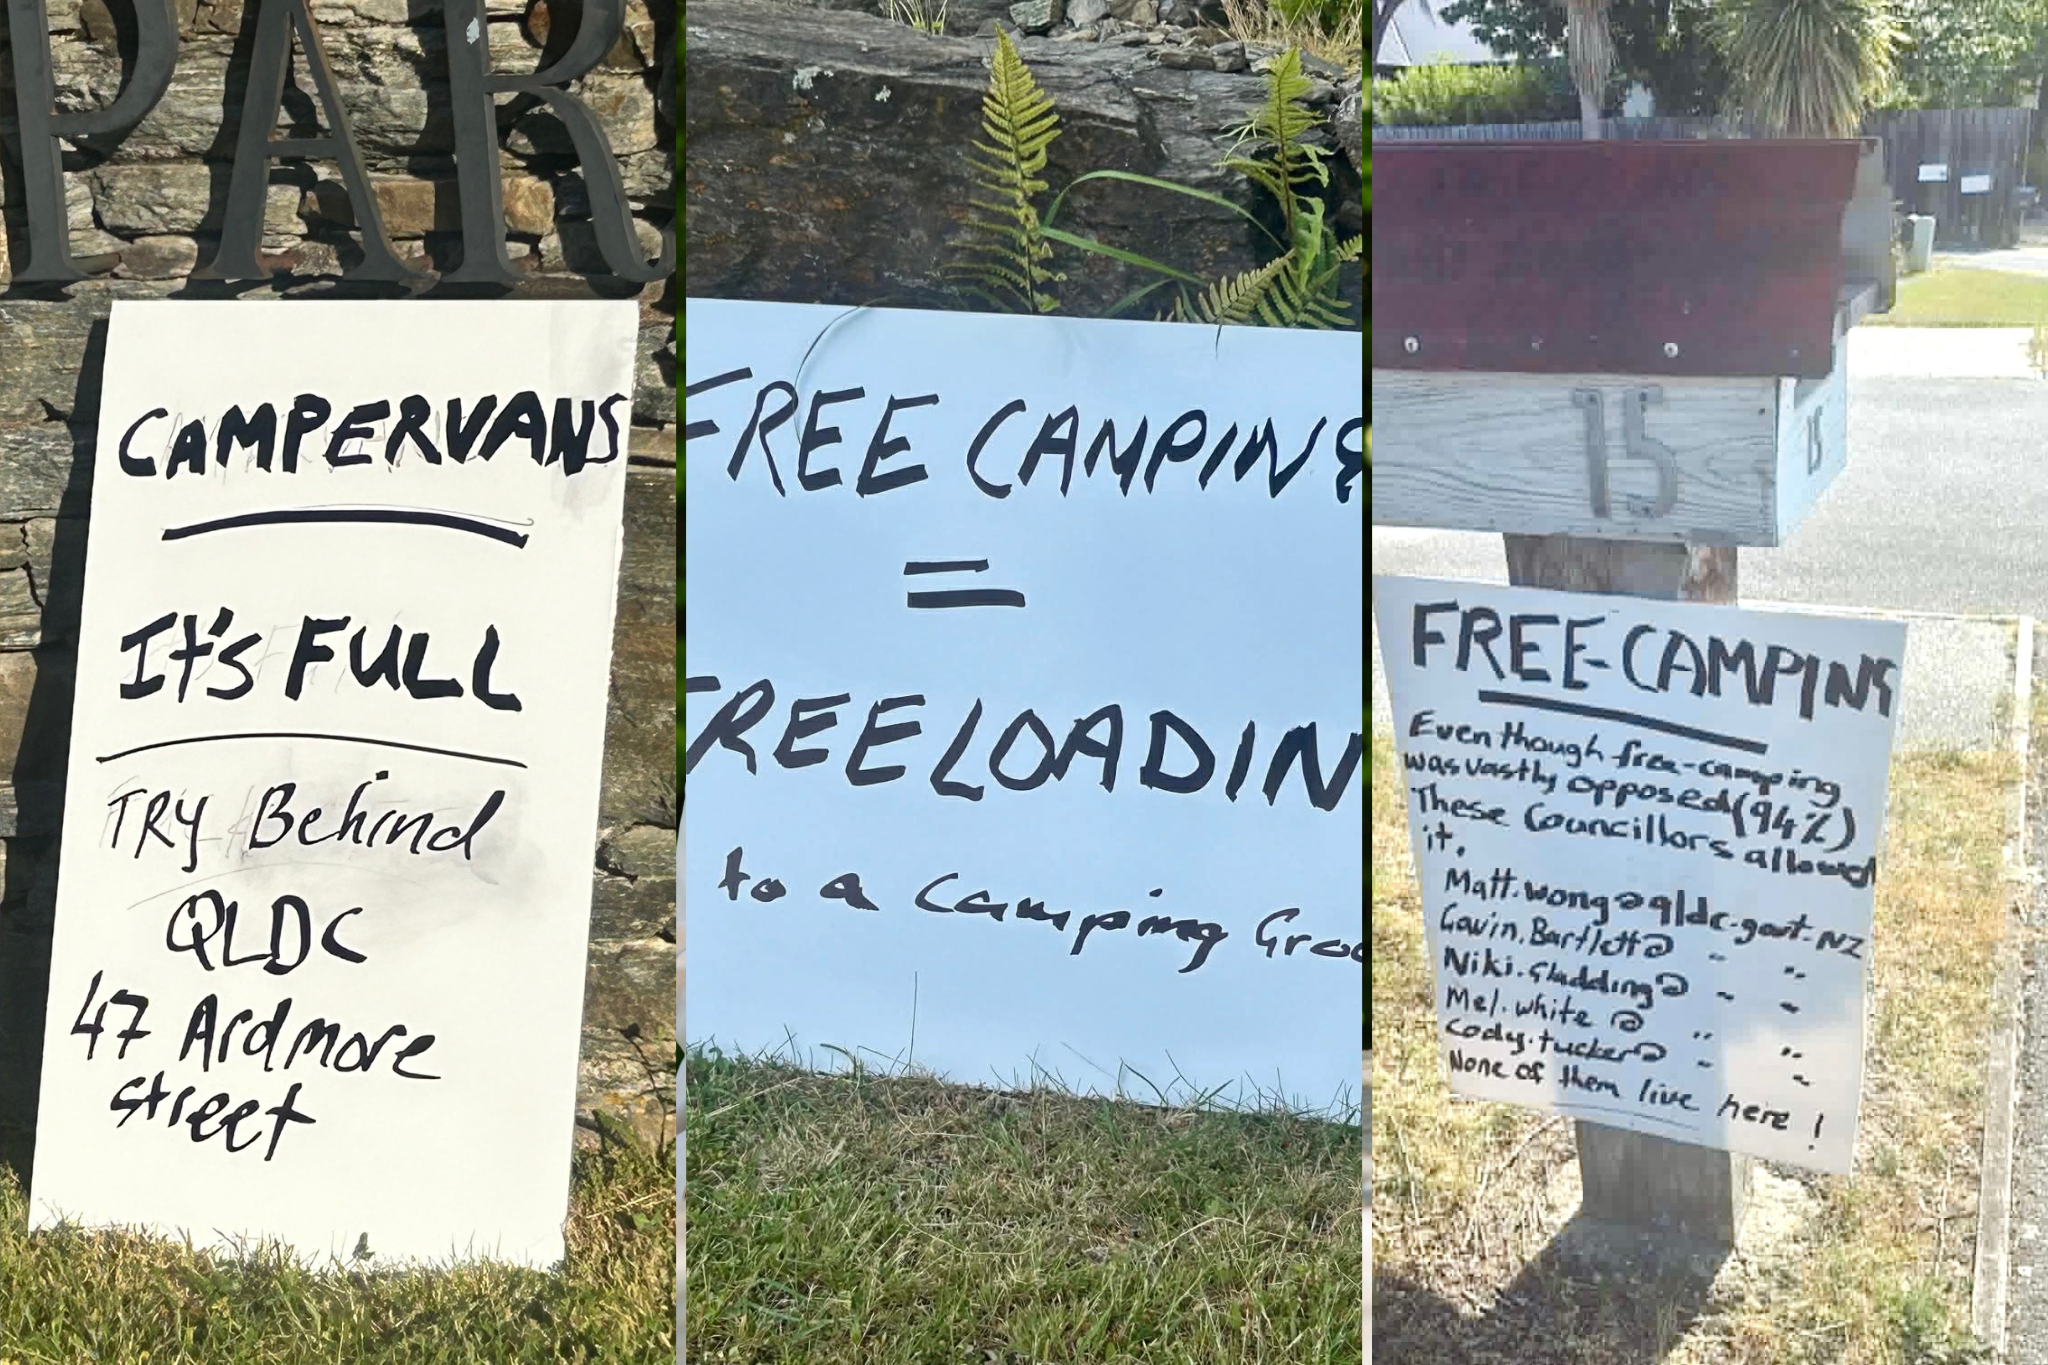 PAR
CAMPERVANS
It's FULL
TRY Behind
QLDC
47 Ardmore
street
FREE CAMPING
=
FREELOADIN
to a Camping Grou
15
15
FREE-CAMPING
Even though free-camping
was vastly opposed (94%)
These Councillors allowed
it.
Matt.wong@qldc.govt.NZ
Gavin.Bartlett@ " "
Niki.Gladding@ " "
Mel.white @ " "
Cody.tucker@ " "
None of them live here!